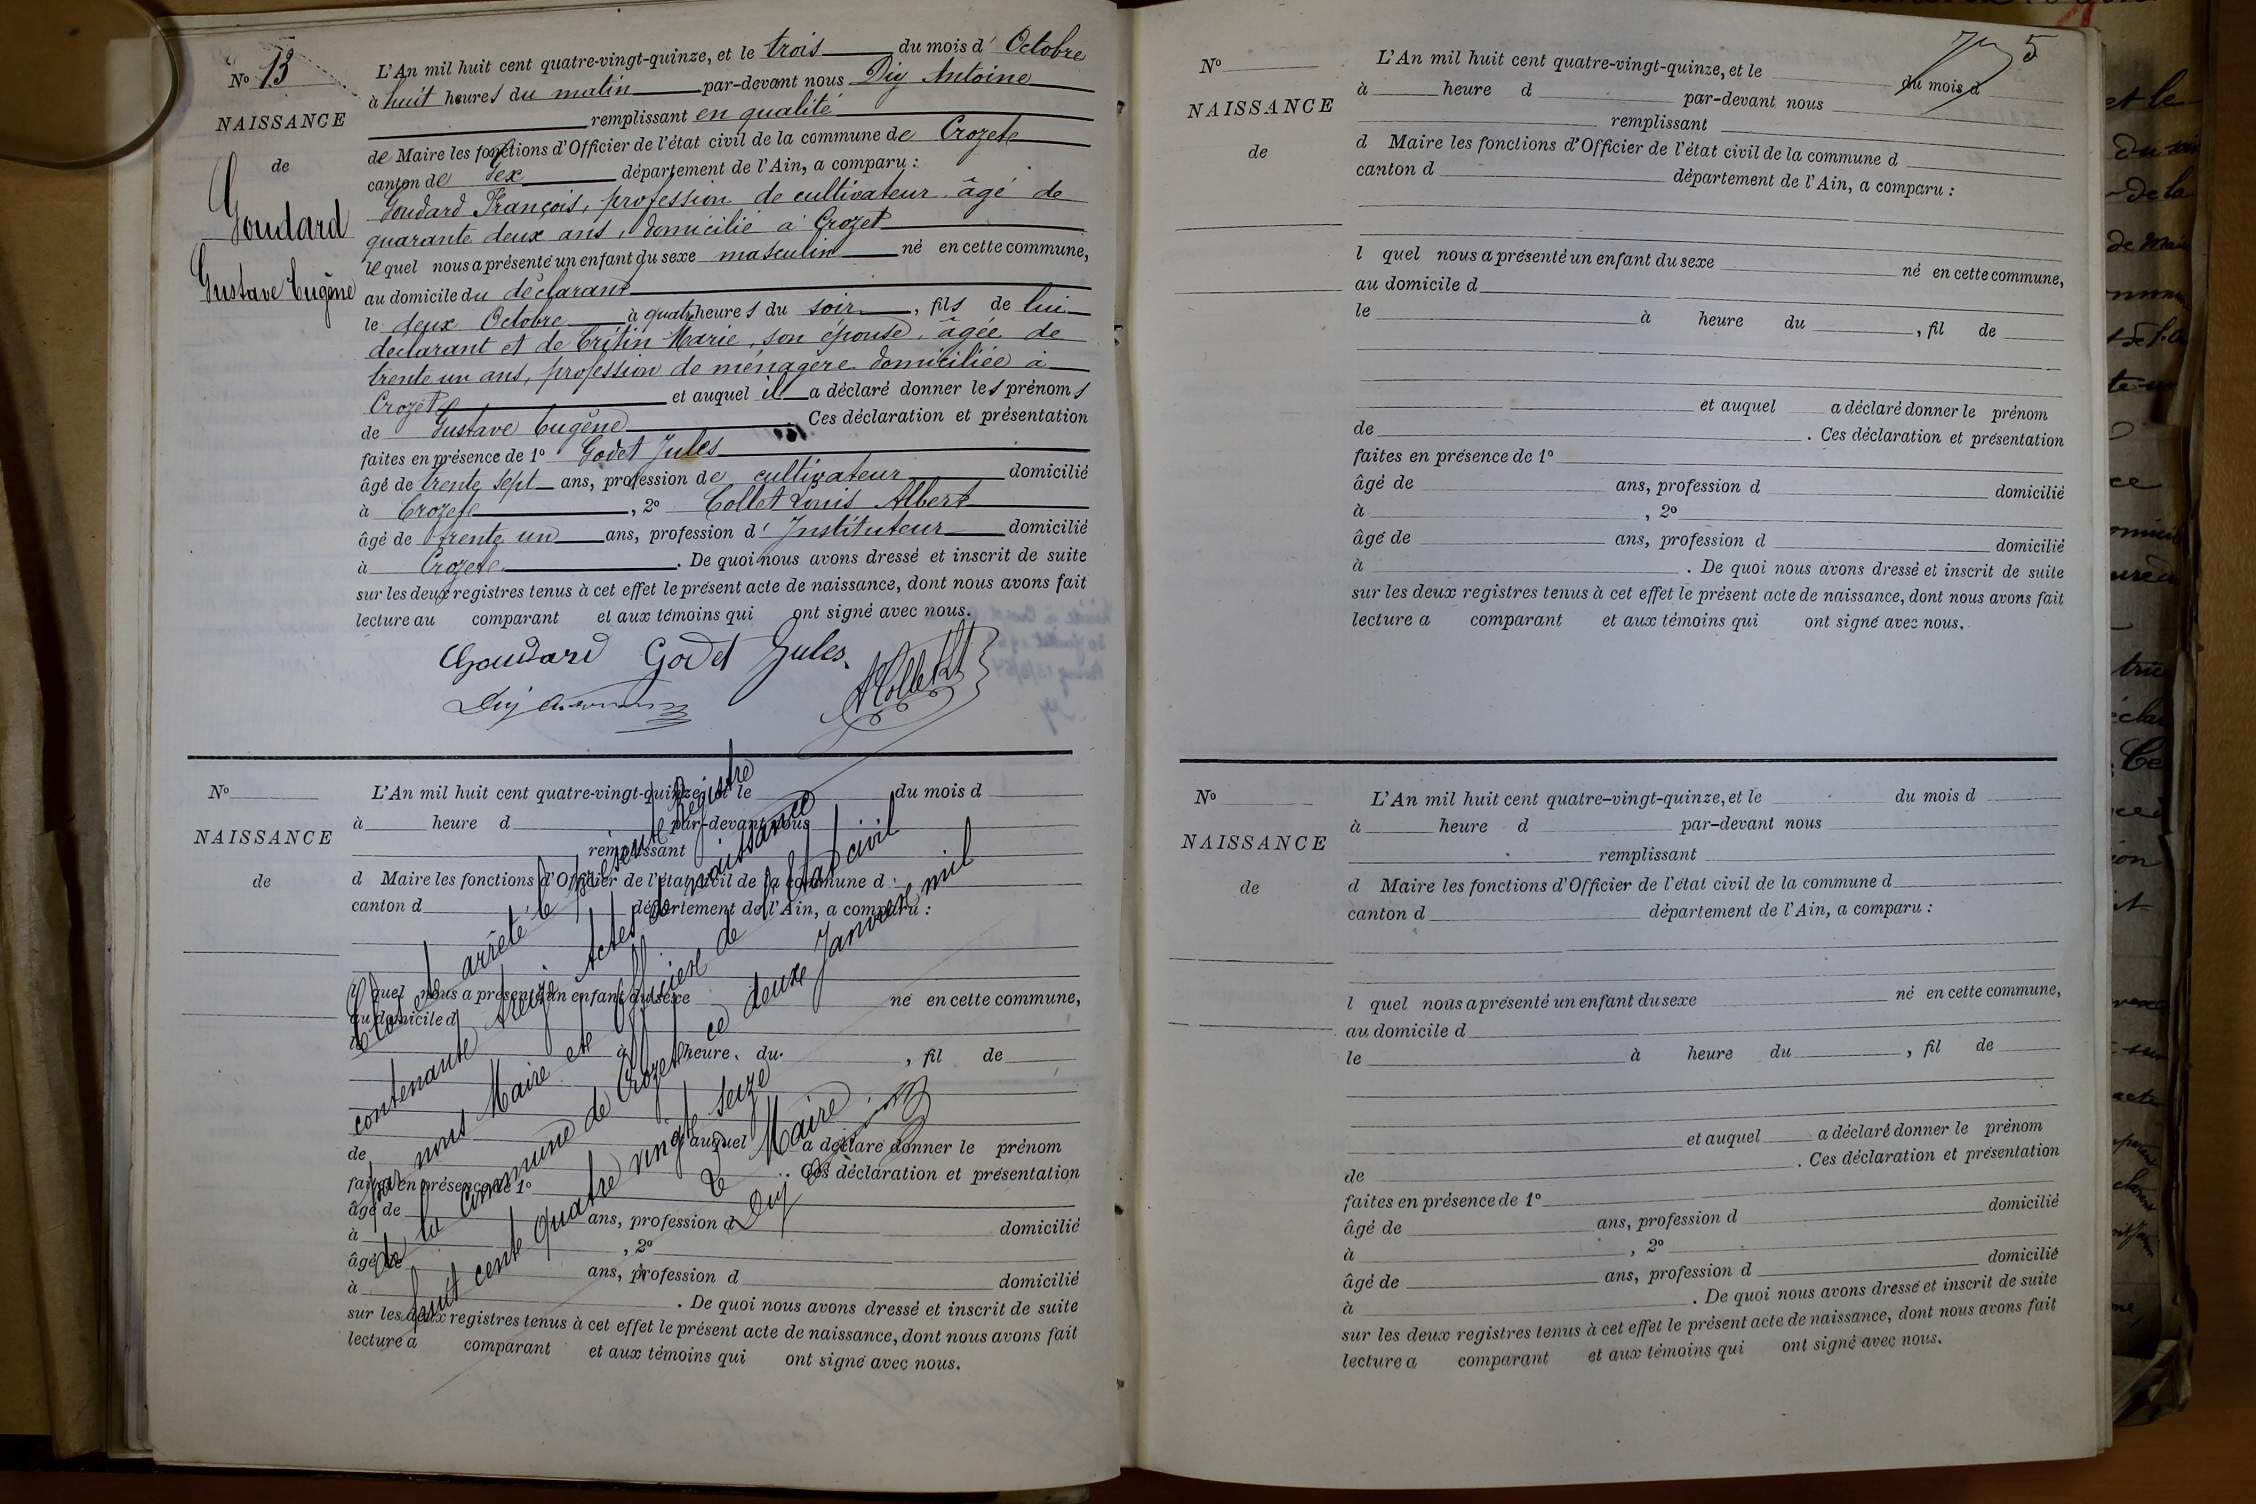 N° 13
NAISSANCE
de
Goudard
Gustave Eugène
L'An mil huit cent quatre-vingt-quinze, et le trois du mois d' Octobre
à huit heures du matin par-devant nous Duy Antoine
remplissant en qualité
de Maire les fonctions d'Officier de l'état civil de la commune de Crozet
canton de Gex département de l'Ain, a comparu :
Goudard François, profession de cultivateur âgé de
quarante deux ans, domicilié à Crozet
le quel nous a présenté un enfant du sexe masculin né en cette commune,
au domicile du déclarant
le deux Octobre à quatre heures du soir, fils de lui
déclarant et de Crétin Marie, son épouse, âgée de
trente un ans, profession de ménagère domiciliée à
Crozet et auquel il a déclaré donner les prénoms
de Gustave Eugène Ces déclaration et présentation
faites en présence de 1° Godet Jules
âgé de trente sept ans, profession de cultivateur domicilié
à Crozet, 2° Collet Louis Albert
âgé de trente un ans, profession d' Instituteur domicilié
à Crozet. De quoi nous avons dressé et inscrit de suite
sur les deux registres tenus à cet effet le présent acte de naissance, dont nous avons fait
lecture au comparant et aux témoins qui ont signé avec nous.
Goudard Godet Jules
Duy A Collet
N°
NAISSANCE
de
L'An mil huit cent quatre-vingt-quinze, et le du mois d
à heure d par-devant nous
remplissant
d Maire les fonctions d'Officier de l'état civil de la commune d
canton d département de l'Ain, a comparu :
l quel nous a présenté un enfant du sexe né en cette commune,
au domicile d
le à heure du , fil de
et auquel a déclaré donner le prénom
de . Ces déclaration et présentation
faites en présence de 1°
âgé de ans, profession d domicilié
à , 2°
âgé de ans, profession d domicilié
à . De quoi nous avons dressé et inscrit de suite
sur les deux registres tenus à cet effet le présent acte de naissance, dont nous avons fait
lecture a comparant et aux témoins qui ont signé avec nous.
Clos et arrêté le présent Registre
contenant treize Actes de naissance
par nous Maire et officier de l'état civil
de la commune de Crozet ce deux Janvier mil
huit cent quatre vingt seize
Le Maire
Duy
5
N°
NAISSANCE
de
L'An mil huit cent quatre-vingt-quinze, et le du mois d
à heure d par-devant nous
remplissant
d Maire les fonctions d'Officier de l'état civil de la commune d
canton d département de l'Ain, a comparu :
l quel nous a présenté un enfant du sexe né en cette commune,
au domicile d
le à heure du , fil de
et auquel a déclaré donner le prénom
de . Ces déclaration et présentation
faites en présence de 1°
âgé de ans, profession d domicilié
à , 2°
âgé de ans, profession d domicilié
à . De quoi nous avons dressé et inscrit de suite
sur les deux registres tenus à cet effet le présent acte de naissance, dont nous avons fait
lecture a comparant et aux témoins qui ont signé avec nous.
N°
NAISSANCE
de
L'An mil huit cent quatre-vingt-quinze, et le du mois d
à heure d par-devant nous
remplissant
d Maire les fonctions d'Officier de l'état civil de la commune d
canton d département de l'Ain, a comparu :
l quel nous a présenté un enfant du sexe né en cette commune,
au domicile d
le à heure du , fil de
et auquel a déclaré donner le prénom
de . Ces déclaration et présentation
faites en présence de 1°
âgé de ans, profession d domicilié
à , 2°
âgé de ans, profession d domicilié
à . De quoi nous avons dressé et inscrit de suite
sur les deux registres tenus à cet effet le présent acte de naissance, dont nous avons fait
lecture a comparant et aux témoins qui ont signé avec nous.